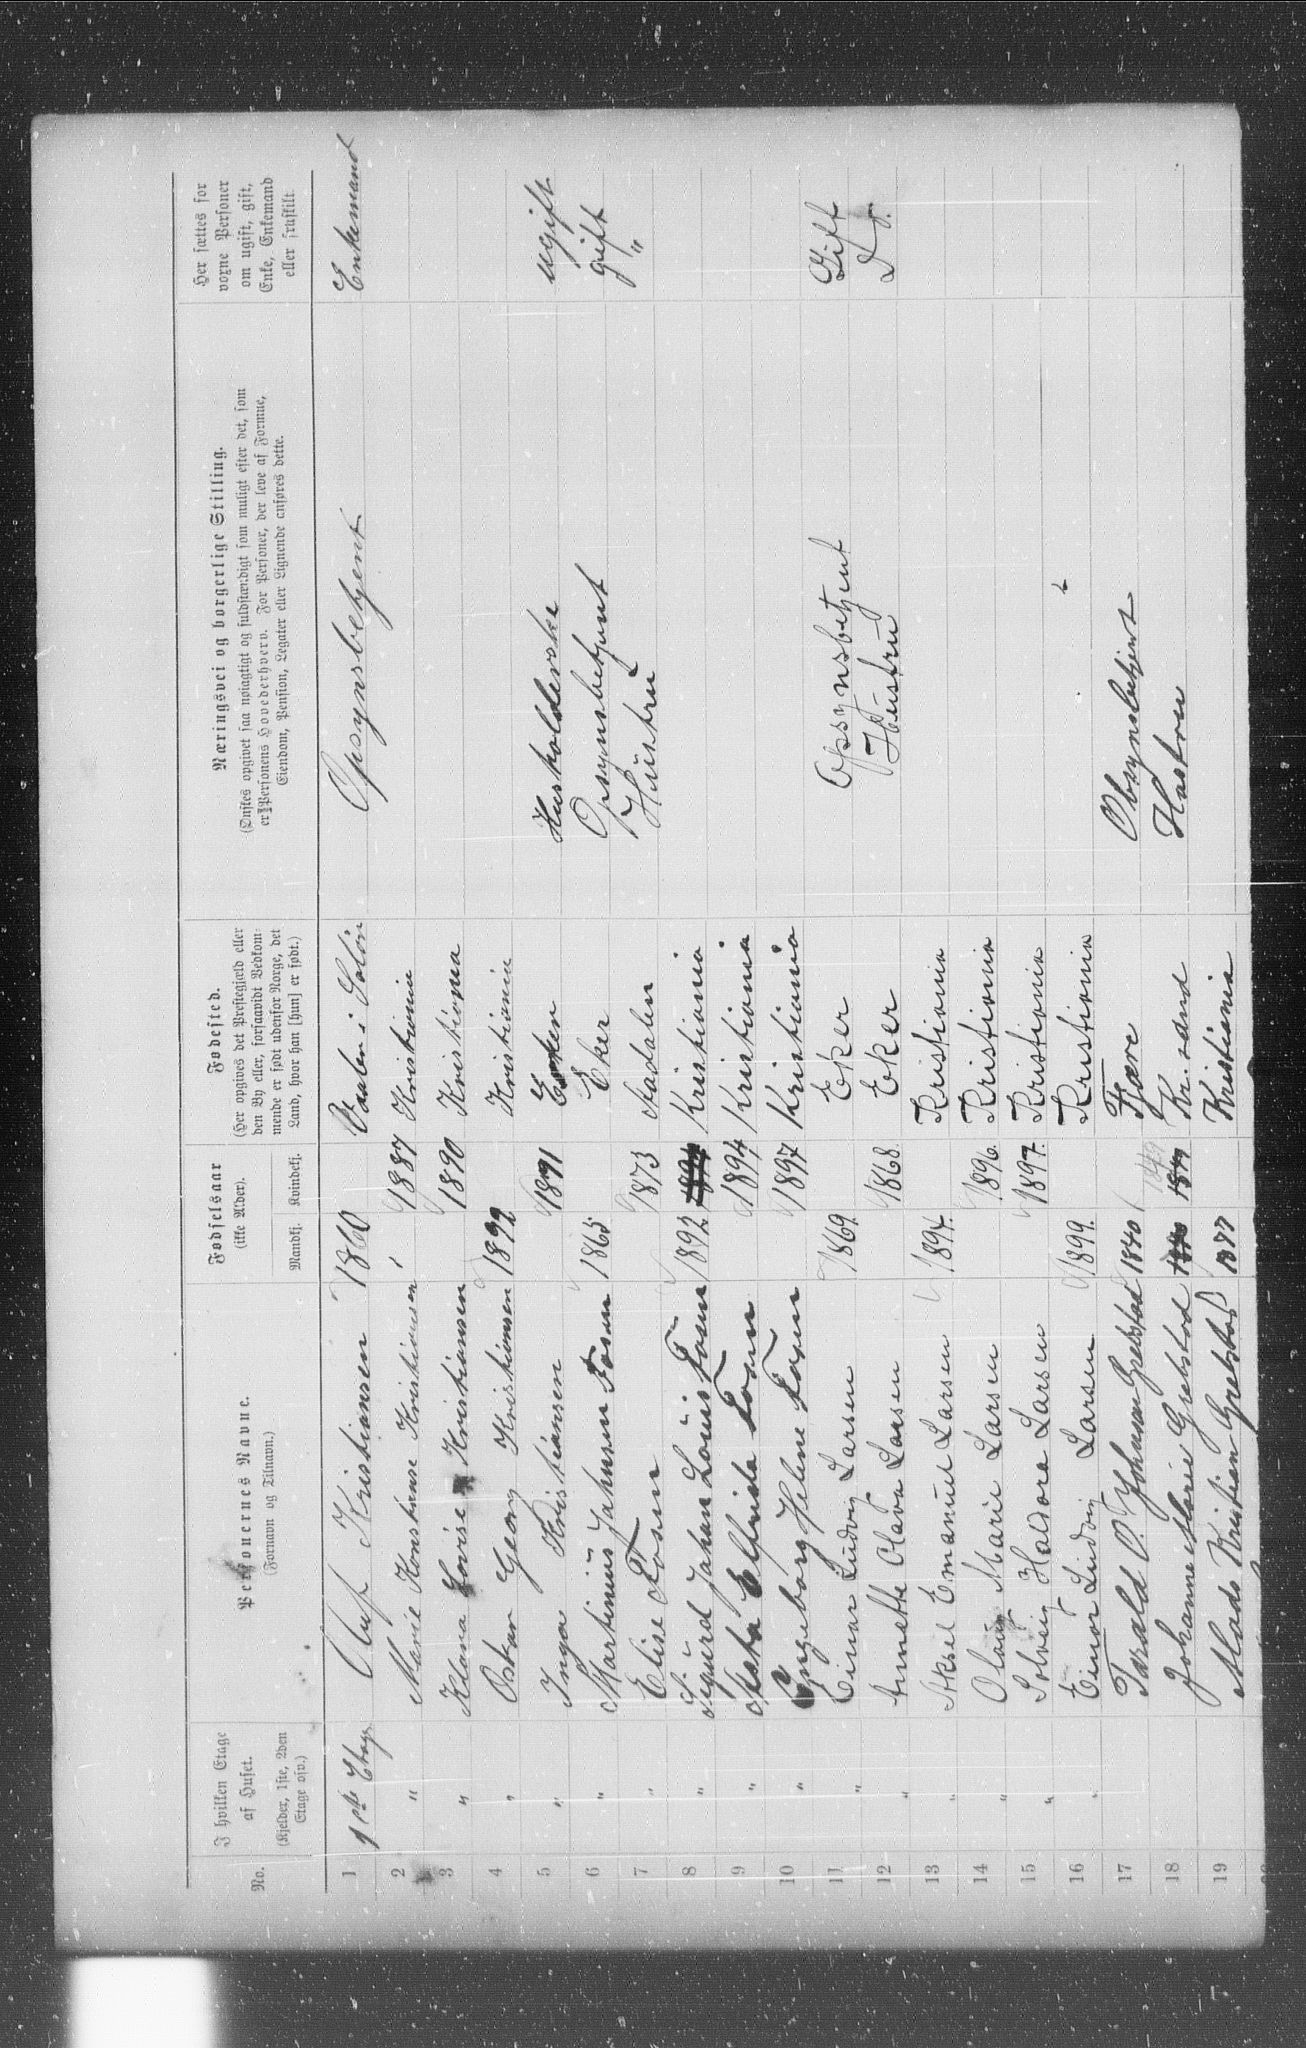 No.
I hvilken Etage
af Huset.
(Kjelder, 1ste, 2den
Etage osv.)
Personernes Navne.
(Fornavn og Tilnavn.)
Fødselsaar
(ikke Alder).
Mandkj. Kvindekj.
Fødested.
(Her opgives det Prestegjæld eller
den By eller, forsaavidt Vedkom-
mende er født udenfor Norge, det
Land, hvor han [hun] er født.)
Næringsvei og borgerlige Stilling.
(Ønskes opgivet saa nøiagtigt og fuldstændigt som muligt efter det, som
er Personens Hovederhverv. For Personer, der leve af Formue,
Eiendom, Pension, Legater eller Lignende anføres dette.
Her sættes for
voxne Personer
om ugift, gift,
Enke, Enkemand
eller fraskilt
1 1ste Etage Oluf Kristiansen 1860 Vaaler i Solør Opsynsbetjent Enkemand
2 " Marie Konstanse Kristiansen 1887 Kristiania
3 " Klara Lovise Kristiansen 1890 Kristiania
4 " Oskar Georg Kristiansen 1892 Kristiania
5 " Inga Kristiansen 1871 Husholderske ugift
6 " Martinius Johnsen Fosen 1865 Eker Opsynsbetjent gift
7 " Elise Fosen 1873 Aadalen Hustru "
8 " Sigurd Johan Louis Fosen 1892 Kristiania
9 " Asta Elfrida Fosen 1894 Kristiania
10 " Ingeborg Helene Fosen 1897 Kristiania
11 " Einar Ludvig Larsen 1869. Eker Opsynsbetjent Gift
12 " Annette Olava Larsen 1868. Eker Hustru D o.
13 " Aksel Emanuel Larsen 1894. Kristiania
14 " Olaug Marie Larsen 1896. Kristiania
15 " Solveig Haldora Larsen 1897. Kristiania
16 " Einar Ludvig Larsen 1899. Kristiania
17 Torald O. Johnsen Grelstad 1840 Tjære Obsynsbetjent
18 Johanne Marie Grelstad 1849 Kr.sand Hustru
19 Mads Kristian Grelstad 1877 Kristiania